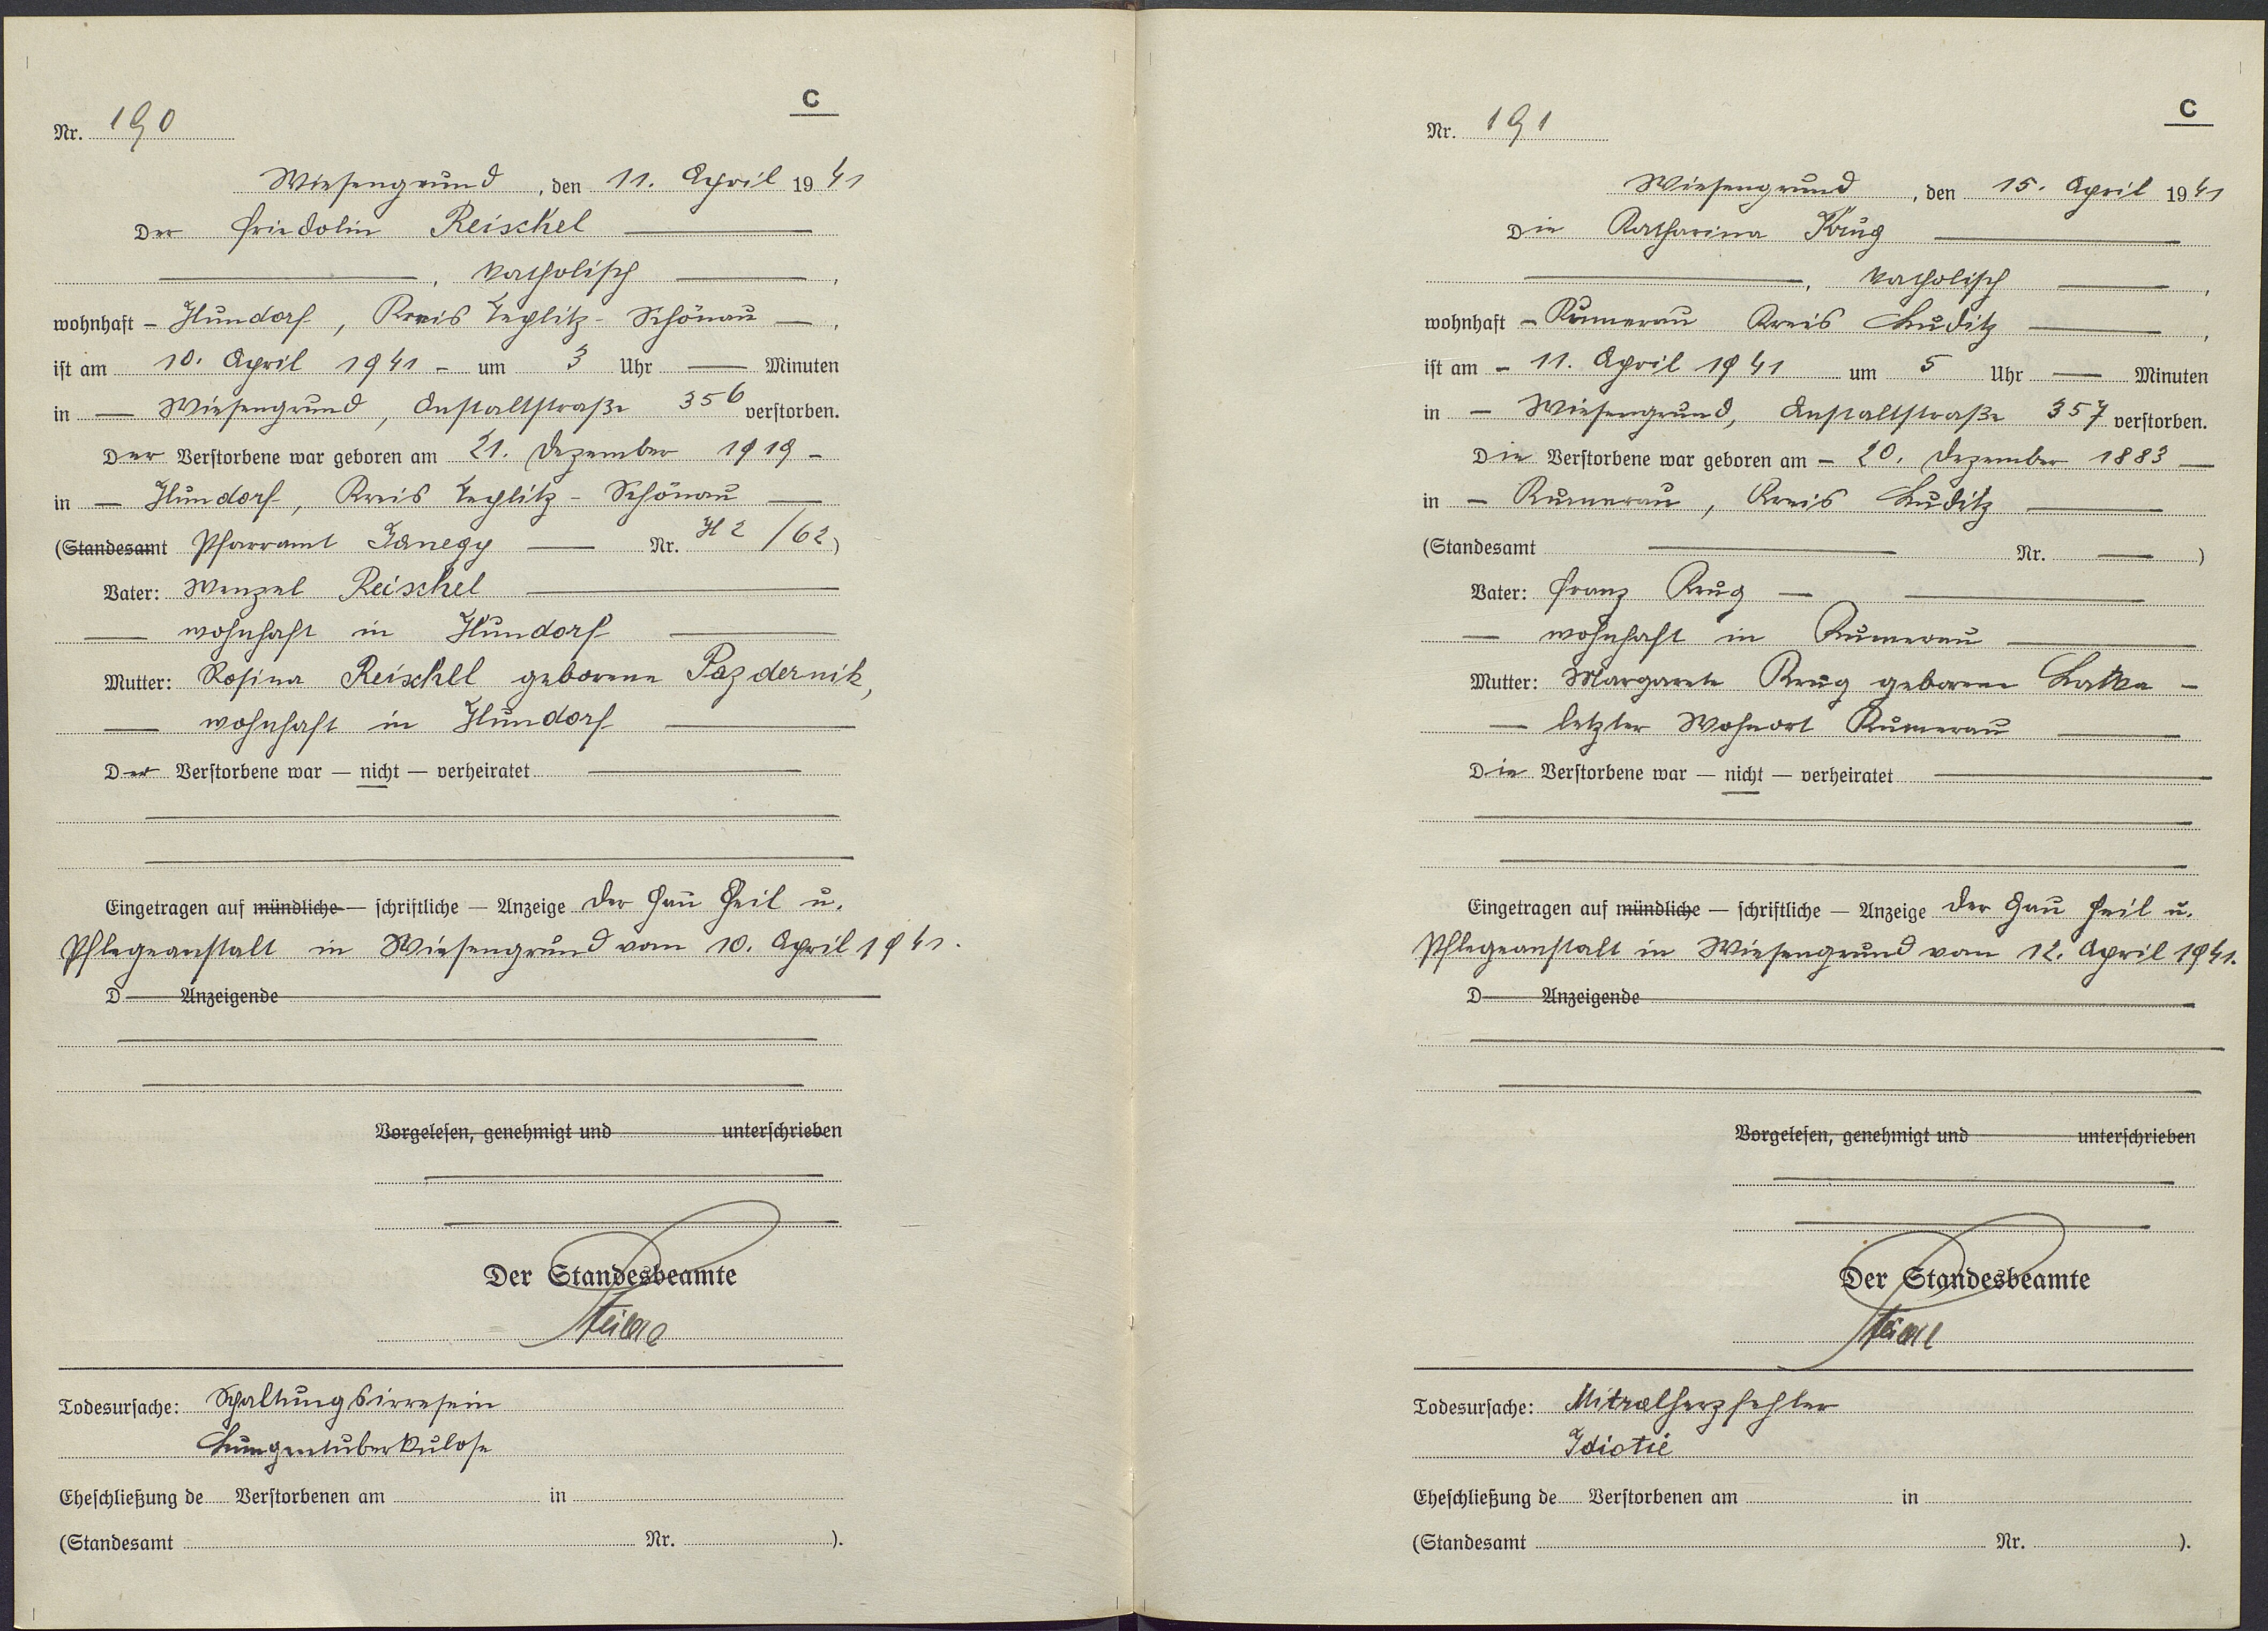 C
Nr. 190
Wiesengrund, den 11. April 1941
Der Fridolin Reischel
, katholisch ,
wohnhaft - Hundorf, Kreis Teplitz-Schönau — ,
ist am 10. April 1941 - um 3 Uhr — Minuten
in — Wiesengrund, Anstaltstraße 356 verstorben.
Der Verstorbene war geboren am 21. Dezember 1919 -
in — Hundorf, Kreis Teplitz-Schönau —
(Standesamt Pfarramt Janegg — Nr. H 2/62)
Vater: Wenzel Reischel
— wohnhaft in Hundorf —
Mutter: Rosina Reischel geborene Pazdernik,
— wohnhaft in Hundorf —
Der Verstorbene war — nicht — verheiratet
Eingetragen auf mündliche — schriftliche — Anzeige der Gau Heil u.
Pflegeanstalt in Wiesengrund vom 10. April 1941.
D Anzeigende
Vorgelesen, genehmigt und unterschrieben
Der Standesbeamte
Todesursache: Spaltungsirresein
Lungentuberkulose
Eheschließung de Verstorbenen am in
(Standesamt Nr. ).
C
Nr. 191
Wiesengrund, den 15. April 1941
Die Katharina Krug
, katholisch — ,
wohnhaft - Kumerau Kreis Luditz — ,
ist am - 11. April 1941 um 5 Uhr — Minuten
in - Wiesengrund, Anstaltstraße 357 verstorben.
Die Verstorbene war geboren am - 20. Dezember 1883 —
in - Kumerau, Kreis Luditz —
(Standesamt — Nr. — )
Vater: Franz Krug —
— wohnhaft in Kumerau —
Mutter: Margarete Krug geborene -
— letzter Wohnort Kumerau —
Die Verstorbene war — nicht — verheiratet
Eingetragen auf mündliche — schriftliche — Anzeige der Gau Heil u.
Pflegeanstalt in Wiesengrund vom 12. April 1941.
D Anzeigende
Vorgelesen, genehmigt und unterschrieben
Der Standesbeamte
Todesursache: Mitralherzfehler
Idiotie
Eheschließung de Verstorbenen am in
(Standesamt Nr. ).